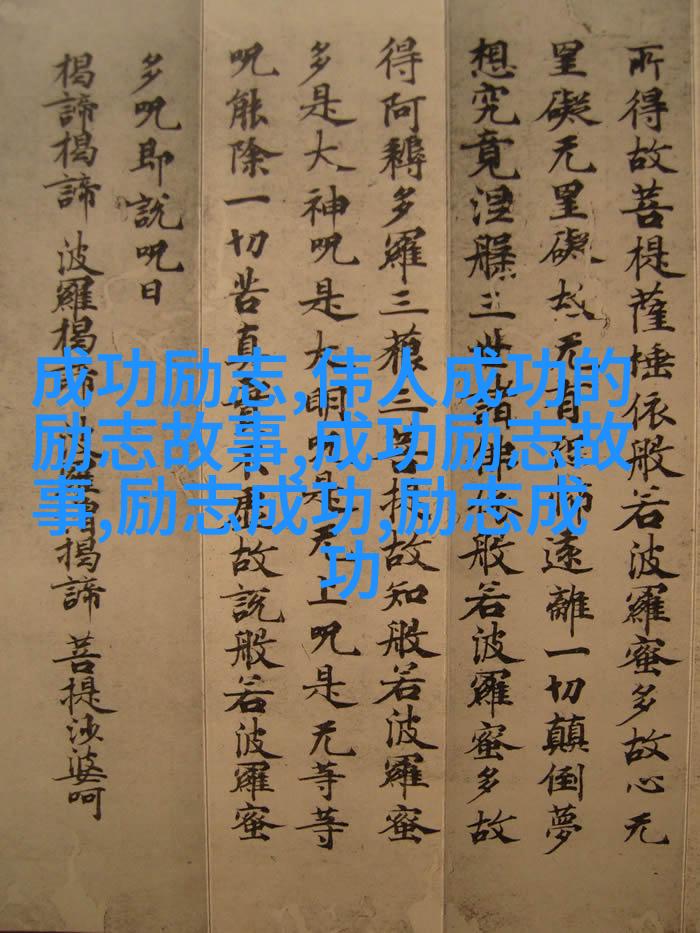 所得故菩提薩埵依般若波羅蜜多故心无
罣礙无罣礙故无有恐怖遠離一切顛倒夢
想究竟涅槃三世諸佛依般若波羅蜜多故
得阿耨多羅三藐三菩提故知般若波羅蜜
多是大神呪是大明呪是无上呪是无等等
呪能除一切苦真實不虛故說般若波羅蜜
多呪即說呪曰
揭諦揭諦 波羅揭諦 波羅僧揭諦 菩提沙婆呵
成功励志,伟人成功的
励志故事,成功励志故
事,励志成功,励志成
功